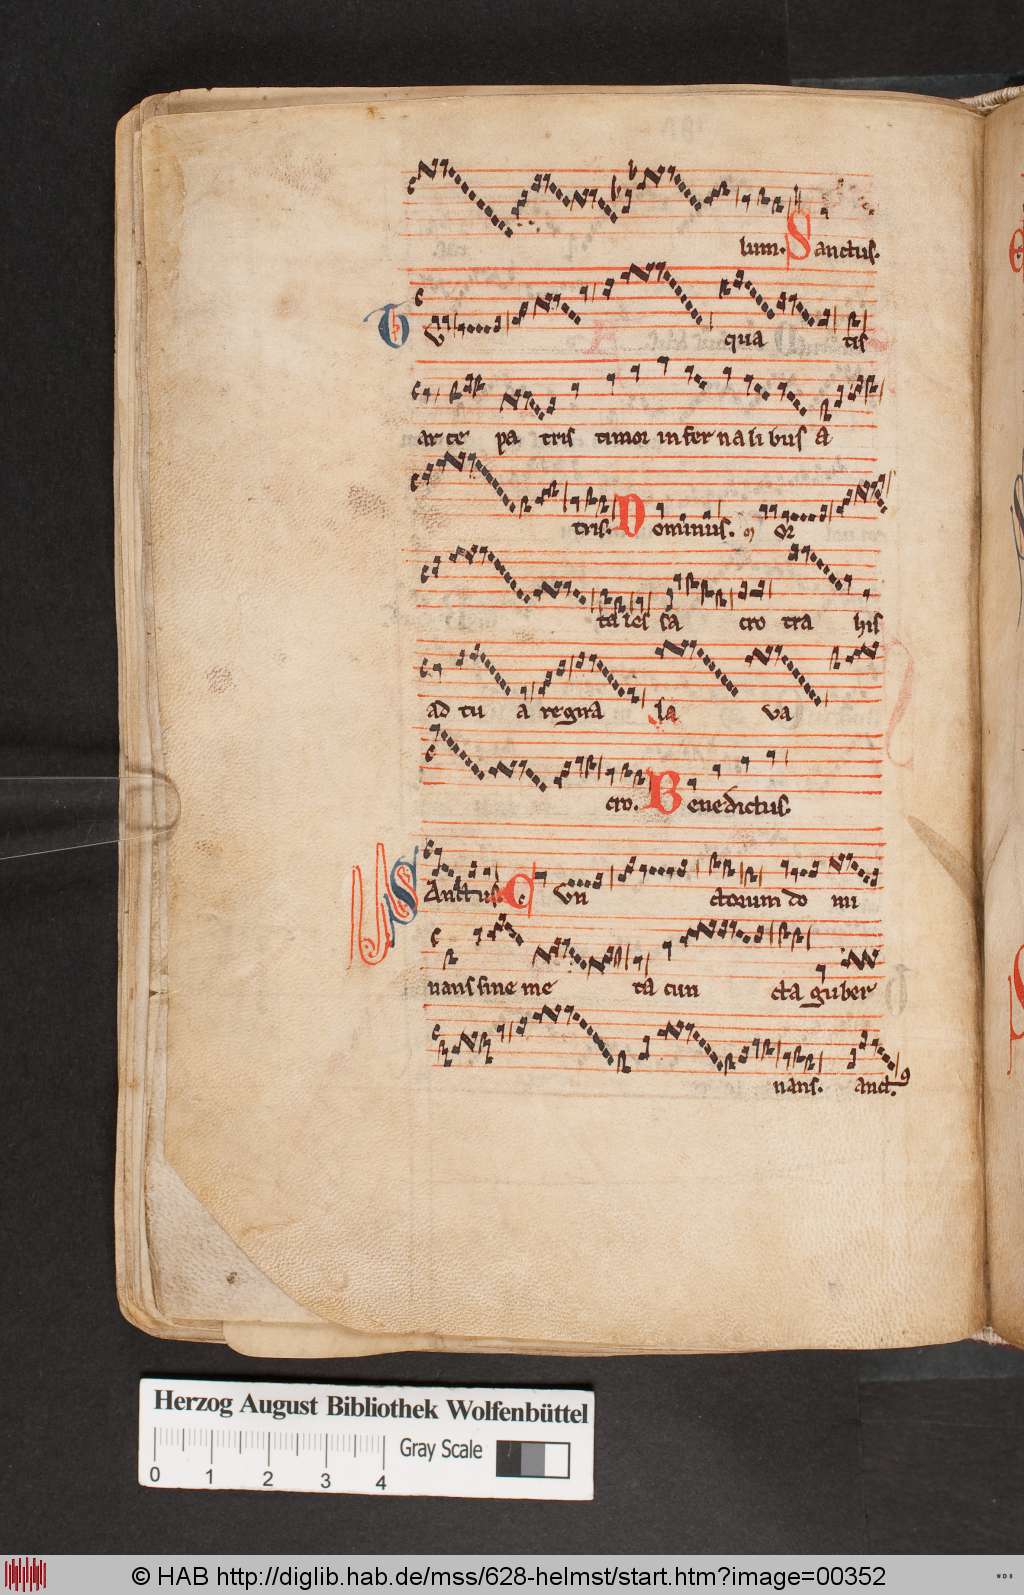 lum. Sanctus.
G qua tis
arte pa tris timor infernalibus a
tris. Dominus. or
tales sa cro tra his
ad tu a regna la va
cro. Benedictus.
SAnctus. Cun ctorum do mi
nans sine me ta cun cta guber
nans. anct.
Herzog August Bibliothek Wolfenbüttel
Gray Scale
0 1 2 3 4
© HAB http://diglib.hab.de/mss/628-helmst/start.htm?image=00352